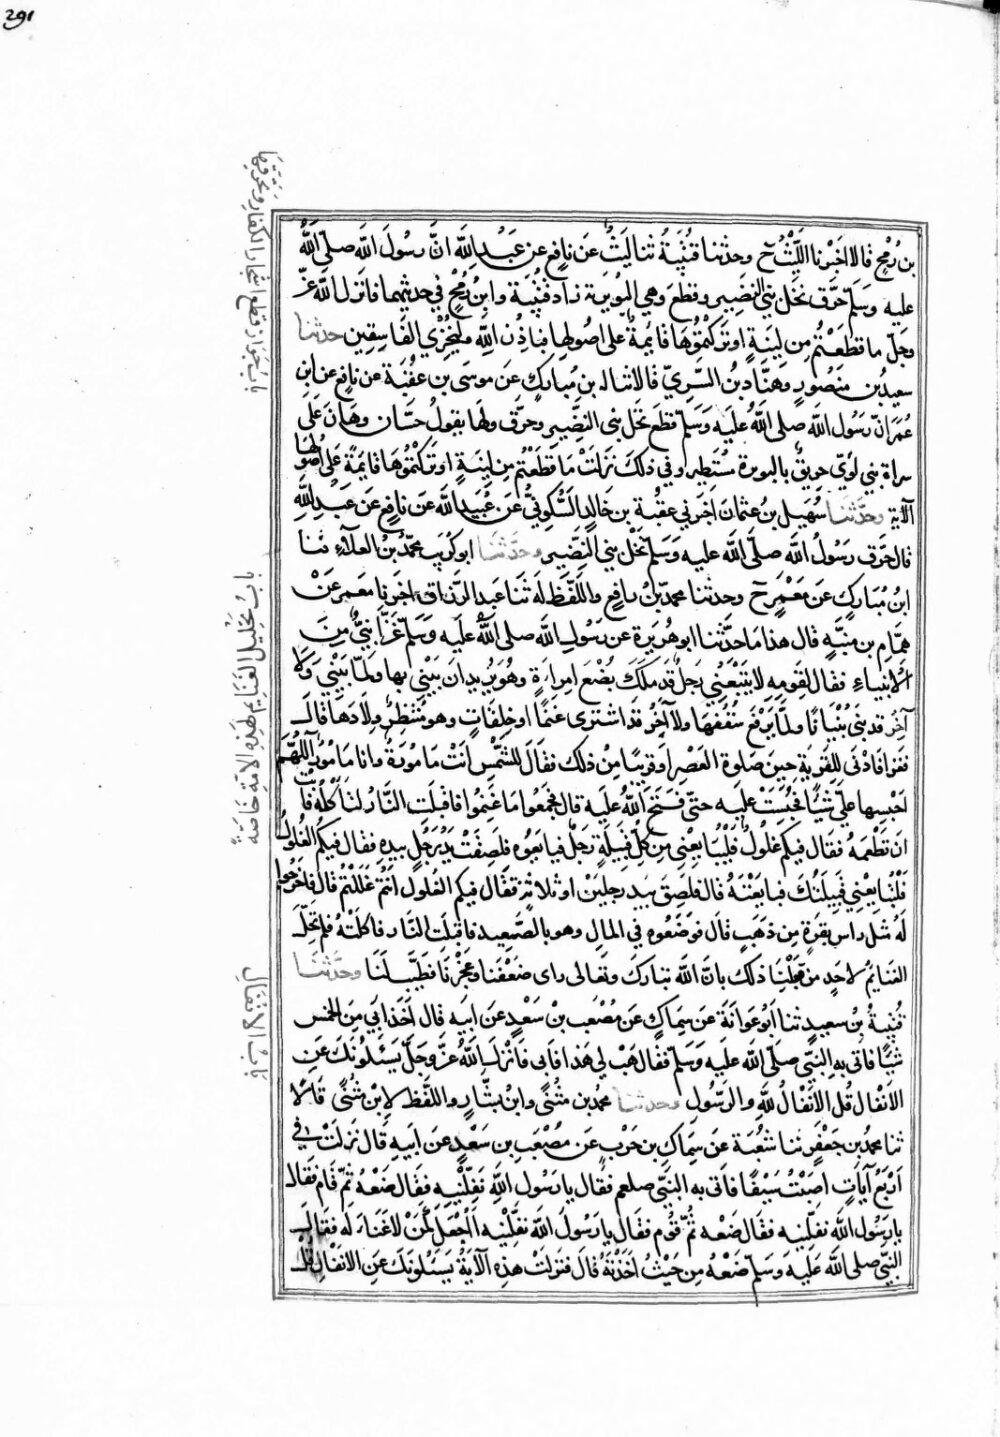 291
باب جواز قطع اشجار الكفار وتحريقها
بن رمح قالا اخبرنا الليث ح وحدثنا قتيبة ثنا ليث عن نافع عن عبد الله ان رسول الله صلى الله
عليه وسلم حرق نخل بني النضير وقطع وهي البويرة زاد قتيبة وابن رمح في حديثهما فانزل الله عز
وجل ما قطعتم من لينة او تركتموها قايمة على اصولها فباذن الله وليخزي الفاسقين حدثنا
سعيد بن منصور وهناد بن السري قالا ثنا ابن مبارك عن موسى بن عقبة عن نافع عن ابن
عمر ان رسول الله صلى الله عليه وسلم قطع نخل بني النضير وحرق ولها يقول حسان وهان على
سراة بني لوي حريق بالبويرة مستطير وفي ذلك نزلت ما قطعتم من لينة او تركتموها قايمة على اصولها
الآية وحدثنا سهيل بن عثمان اخبرني عقبة بن خالد السكوني عن عبيد الله عن نافع عن عبد الله
قال حرق رسول الله صلى الله عليه وسلم نخل بني النضير وحدثنا ابو كريب محمد بن العلاء ثنا
باب تحليل الغنايم لهذه الامة خاصة
ابن مبارك عن معمر ح وحدثنا محمد بن رافع واللفظ له ثنا عبد الرزاق اخبرنا معمر عن
همام بن منبه قال هذا ما حدثنا ابو هريرة عن رسول الله صلى الله عليه وسلم غزا نبي من
الانبياء فقال لقومه لا يتبعني رجل قد ملك بضع امراة وهو يريد ان يبني بها ولما يبني ولا
آخر قد بنى بنيانا ولما يرفع سقفها ولا آخر قد اشترى غنما او خلفات وهو منتظر ولادها قال
فغزا فادنى للقرية حين صلوة العصر او قريبا من ذلك فقال للشمس انت مامورة وانا مامور اللهم
احبسها علي شيئا فحبست عليه حتى فتح الله عليه قال فجمعوا ما غنموا فاقبلت النار لتاكله فابت
ان تطعمه فقال فيكم غلول فليبايعني من كل قبيلة رجل فبايعوه فلصقت يد رجل بيده فقال فيكم الغلول
فلتبايعني قبيلتك فبايعته قال فلصق بيد رجلين او ثلاثة فقال فيكم الغلول انتم غللتم قال فاخرجوا
له مثل راس بقرة من ذهب قال فوضعوه في المال وهو بالصعيد فاقبلت النار فاكلته فلم تحل
الغنايم لاحد من قبلنا ذلك بان الله تبارك وتعالى راى ضعفنا وعجزنا فطيبها لنا وحدثنا
باب الانفال
قتيبة بن سعيد ثنا ابو عوانة عن سماك عن مصعب بن سعد عن ابيه قال اخذ ابي من الخمس
شيئا فاتى به النبي صلى الله عليه وسلم فقال هب لي هذا فابى فانزل الله عز وجل يسئلونك عن
الانفال قل الانفال لله والرسول وحدثنا محمد بن مثنى وابن بشار واللفظ لابن مثنى قالا
ثنا محمد بن جعفر ثنا شعبة عن سماك بن حرب عن مصعب بن سعد عن ابيه قال نزلت في
اربع آيات اصبت سيفا فاتى به النبي صلعم فقال يا رسول الله نفلنيه فقال ضعه ثم قام فقال
يا رسول الله نفلنيه فقال ضعه ثم قوم فقال يا رسول الله نفلنيه ااجعل لمن لا غناء له فقال
النبي صلى الله عليه وسلم ضعه من حيث اخذته قال فنزلت هذه الآية يسئلونك عن الانفال قل